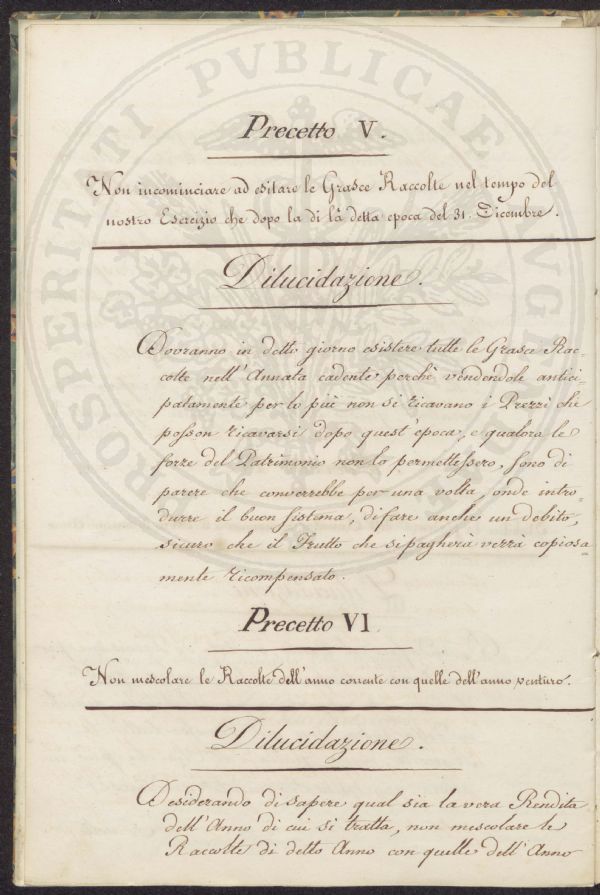 Precetto V.
Non incominciare ad esitare le Grasce Raccolte nel tempo del
nostro Esercizio che dopo la di là detta epoca del 31. Dicembre.
Dilucidazione.
Dovranno in detto giorno esistere tutte le Grasce Rac-
colte nell'Annata cadente perchè vendendole antici-
patamente per lo più non si ricavano i Prezzi che
posson ricavarsi dopo quest'epoca, e qualora le
forze del Patrimonio non lo permettessero, sono di
parere che converrebbe per una volta, onde intro-
durre il buon sistema, di fare anche un debito,
sicuro che il Frutto che si pagherà verrà copiosa-
mente ricompensato.
Precetto VI
Non mescolare le Raccolte dell'anno corrente con quelle dell'anno venturo.
Dilucidazione.
Desiderando di sapere qual sia la vera Rendita
dell'Anno di cui si tratta, non mescolare le
Raccolte di detto Anno con quelle dell'Anno
PROSPERITATI PVBLICAE AVGENDAE